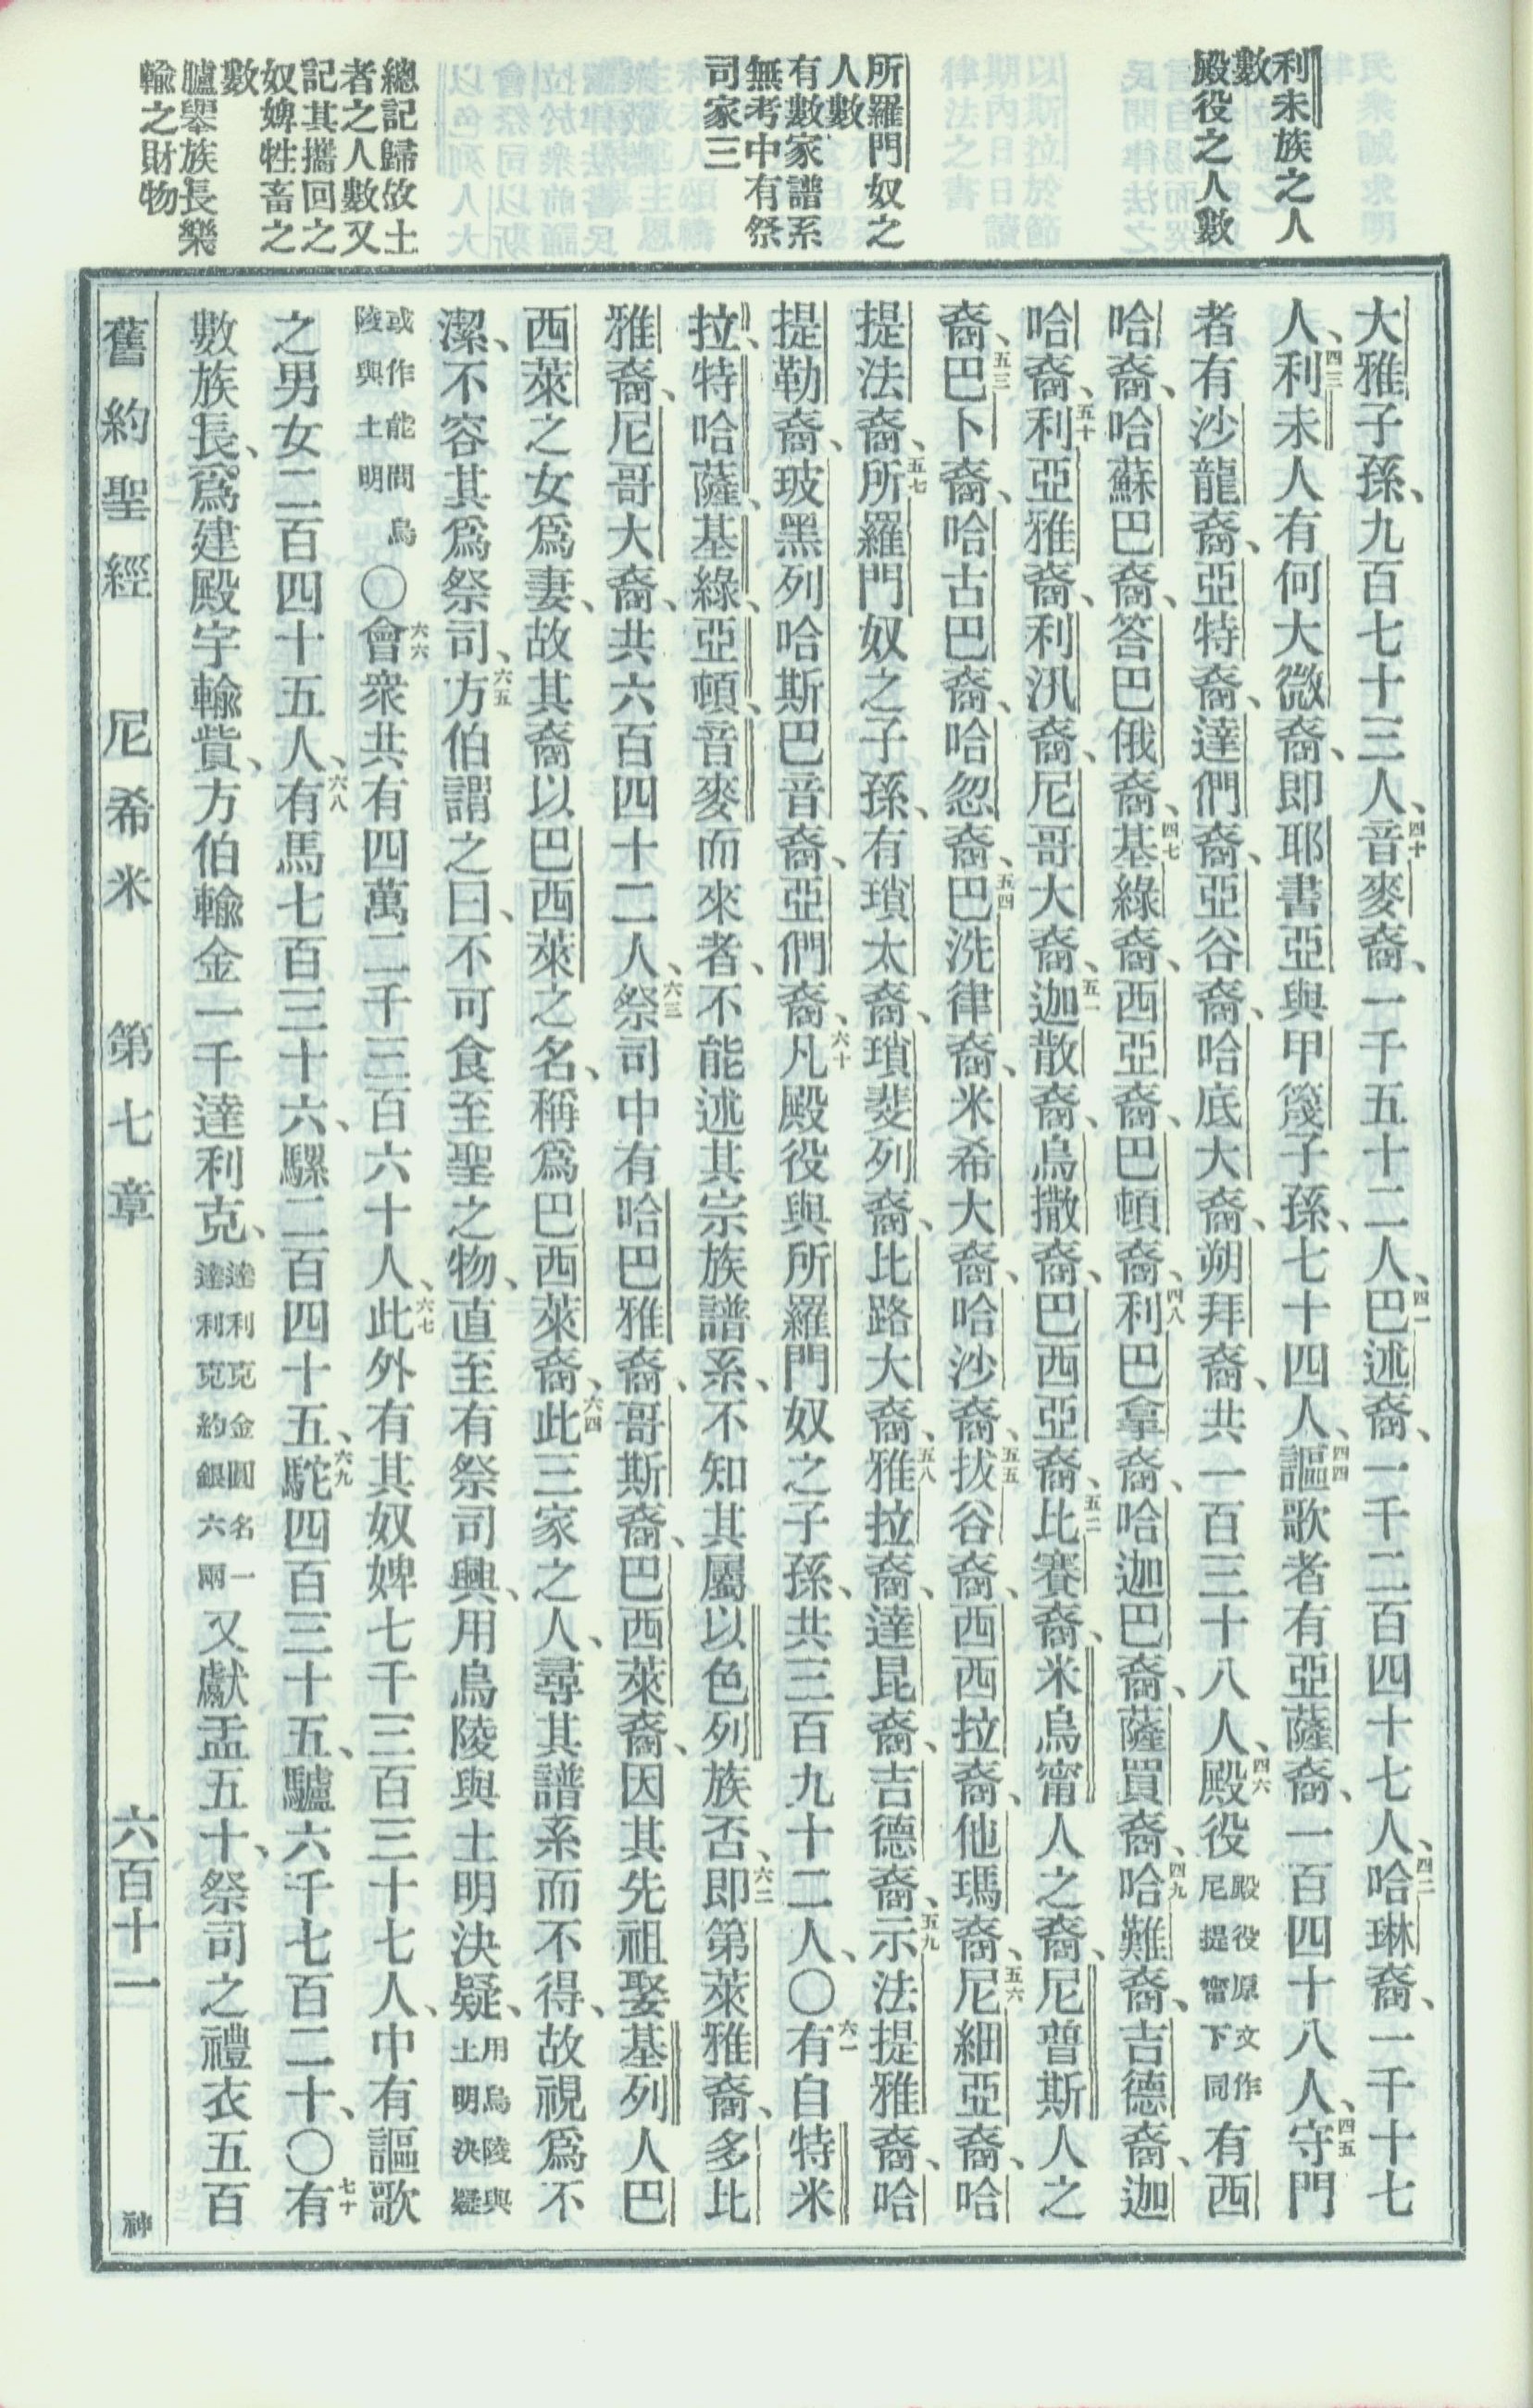 利未族之人
數
殿役之人數
所羅門奴之
人數
有數家譜系
無考中有祭
司家三
總記歸故土
者之人數又
記其攜回之
奴婢牲畜之
數
臚舉族長樂
輸之財物
大雅子孫、九百七十三人、四十音麥裔、一千五十二人、四一巴述裔、一千二百四十七人、四二哈琳裔、一千十七
人、四三利未人有何大微裔、即耶書亞與甲篾子孫、七十四人、四四謳歌者有亞薩裔、一百四十八人、四五守門
者有沙龍裔、亞特裔、達們裔、亞谷裔、哈底大裔、朔拜裔、共一百三十八人、四六殿役殿役原文作尼提甯下同有西
哈裔、哈蘇巴裔、答巴俄裔、四七基綠裔、西亞裔、巴頓裔、四八利巴拿裔、哈迦巴裔、薩買裔、四九哈難裔、吉德裔、迦
哈裔、五十利亞雅裔、利汛裔、尼哥大裔、五一迦散裔、烏撒裔、巴西亞裔、五二比賽裔、米烏甯人之裔、尼普斯人之
裔、五三巴卜裔、哈古巴裔、哈忽裔、五四巴洗律裔、米希大裔、哈沙裔、五五拔谷裔、西西拉裔、他瑪裔、五六尼細亞裔、哈
提法裔、五七所羅門奴之子孫、有瑣太裔、瑣斐列裔、比路大裔、五八雅拉裔、達昆裔、吉德裔、五九示法提雅裔、哈
提勒裔、玻黑列哈斯巴音裔、亞們裔、六十凡殿役與所羅門奴之子孫、共三百九十二人、○六一有自特米
拉、特哈薩、基綠、亞頓、音麥而來者、不能述其宗族譜系、不知其屬以色列族否、六二即第萊雅裔、多比
雅裔、尼哥大裔、共六百四十二人、六三祭司中有哈巴雅裔、哥斯裔、巴西萊裔、因其先祖娶基列人巴
西萊之女爲妻、故其裔以巴西萊之名、稱爲巴西萊裔、六四此三家之人、尋其譜系而不得、故視爲不
潔、不容其爲祭司、六五方伯謂之曰、不可食至聖之物、直至有祭司興、用烏陵與土明決疑、用烏陵與土明決疑
或作能問烏陵與土明○六六會衆共有四萬二千三百六十人、六七此外有其奴婢七千三百三十七人、中有謳歌
之男女二百四十五人、六八有馬七百三十六、騾二百四十五、六九駝四百三十五、驢六千七百二十、○七十有
數族長、爲建殿宇輸貲、方伯輸金一千達利克、達利克金圓名一達利克約銀六兩又獻盂五十、祭司之禮衣五百
舊約聖經 尼希米 第七章 六百十一 神